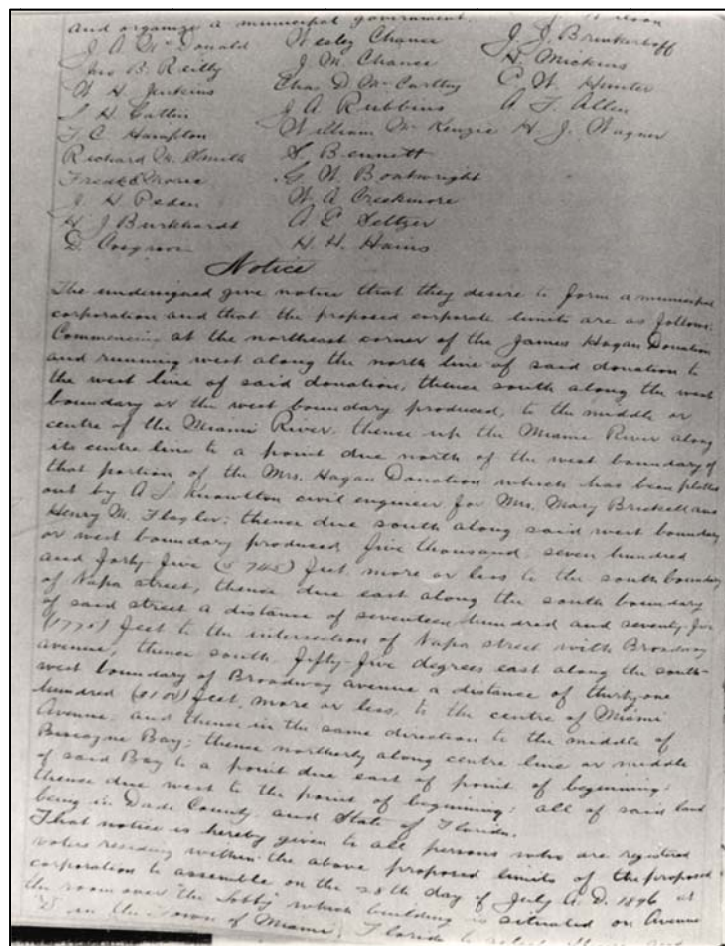 and organize a municipal government.
J. A. McDonald Wesley Chance J. J. Brinkerhoff
Jno B. Reilly J. M. Chance H. Mickins
W. H. Jenkins Chas D. McCarthy C. W. Hunter
J. A. Rubbins A. F. Allen
T. C. Hampton William McKenzie H. J. Wagner
Richard M. Smith S. Bennett
Fred S Morse G. W. Boatwright
J. H. Peden W. A. Creekmore
H J Burkhardt A. C. Seltzer
D. Cosgrove H. H. Hains
Notice
The undersigned give notice that they desire to form a municipal
corporation and that the proposed corporate limits are as follows:
Commencing at the northeast corner of the James Hagan Donation
and running west along the north line of said donation to
the west line of said donation, thence south along the west
boundary or the west boundary produced, to the middle or
centre of the Miami River. thence up the Miami River along
its centre line to a point due north of the west boundary of
that portion of the Mrs. Hagan Donation which has been platted
out by A L Knowlton civil engineer for Mrs. Mary Brickell and
Henry M. Flagler; thence due south along said west boundary
or west boundary produced five thousand seven hundred
and forty five (5745) feet more or less to the south boundary
of Napa street, thence due east along the south boundary
of said street a distance of seventeen hundred and seventy five
(1775) feet to the intersection of Napa street with Broadway
avenue; thence south fifty-five degrees east along the south-
west boundary of Broadway avenue a distance of thirty one
hundred feet, more or less, to the centre of Miami
Avenue; and thence in the same direction to the middle of
Biscayne Bay; thence northerly along centre line or middle
of said Bay to a point due east of point of beginning;
thence due west to the point of beginning; all of said land
being in Dade County and State of Florida.
That notice is hereby given to all persons who are registered
voters residing within the above proposed limits of the proposed
corporation to assemble on the 28th day of July A. D. 1896 at
the room over "the Lobby" which building is situated on Avenue
"D" in the Town of Miami, Florida to